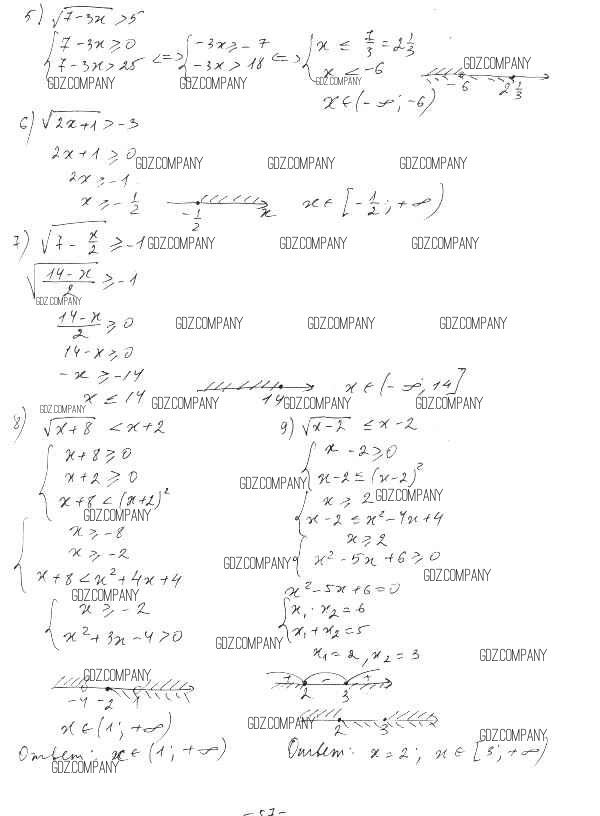 5) √(7-3x) > 5
{ 7-3x ≥ 0 <=> { -3x ≥ -7 <=> { x ≤ 7/3 = 2 1/3
7-3x > 25 -3x > 18 x < -6
GDZ.COMPANY GDZ.COMPANY GDZ.COMPANY GDZ.COMPANY
-6 2 1/3
x ∈ (-∞; -6)
6) √(2x+1) > -3
2x+1 ≥ 0
GDZ.COMPANY GDZ.COMPANY GDZ.COMPANY
2x ≥ -1
x ≥ -1/2 -1/2 x x ∈ [-1/2; +∞)
7) √(7 - x/2) ≥ -1 GDZ.COMPANY GDZ.COMPANY GDZ.COMPANY
√((14-x)/2) ≥ -1
GDZ.COMPANY
(14-x)/2 ≥ 0 GDZ.COMPANY GDZ.COMPANY GDZ.COMPANY
14-x ≥ 0
-x ≥ -14
x ≤ 14 14 x ∈ (-∞, 14]
GDZ.COMPANY GDZ.COMPANY GDZ.COMPANY GDZ.COMPANY
8) √(x+8) < x+2
{ x+8 ≥ 0
x+2 ≥ 0
x+8 < (x+2)²
GDZ.COMPANY
{ x ≥ -8
x ≥ -2
x+8 < x²+4x+4
GDZ.COMPANY
{ x ≥ -2
x²+3x-4 > 0
GDZ.COMPANY
-4 -2 1
x ∈ (1; +∞)
Ответ: x ∈ (1; +∞)
GDZ.COMPANY
9) √(x-2) ≤ x-2
{ x-2 ≥ 0
x-2 ≤ (x-2)²
GDZ.COMPANY
{ x ≥ 2 GDZ.COMPANY
x-2 ≤ x²-4x+4
{ x ≥ 2
x²-5x+6 ≥ 0
GDZ.COMPANY GDZ.COMPANY
x²-5x+6=0
{ x₁·x₂=6
x₁+x₂=5
GDZ.COMPANY
x₁=2, x₂=3 GDZ.COMPANY
+ - +
2 3
GDZ.COMPANY 2 3
GDZ.COMPANY
Ответ: x=2; x ∈ [3; +∞)
-57-